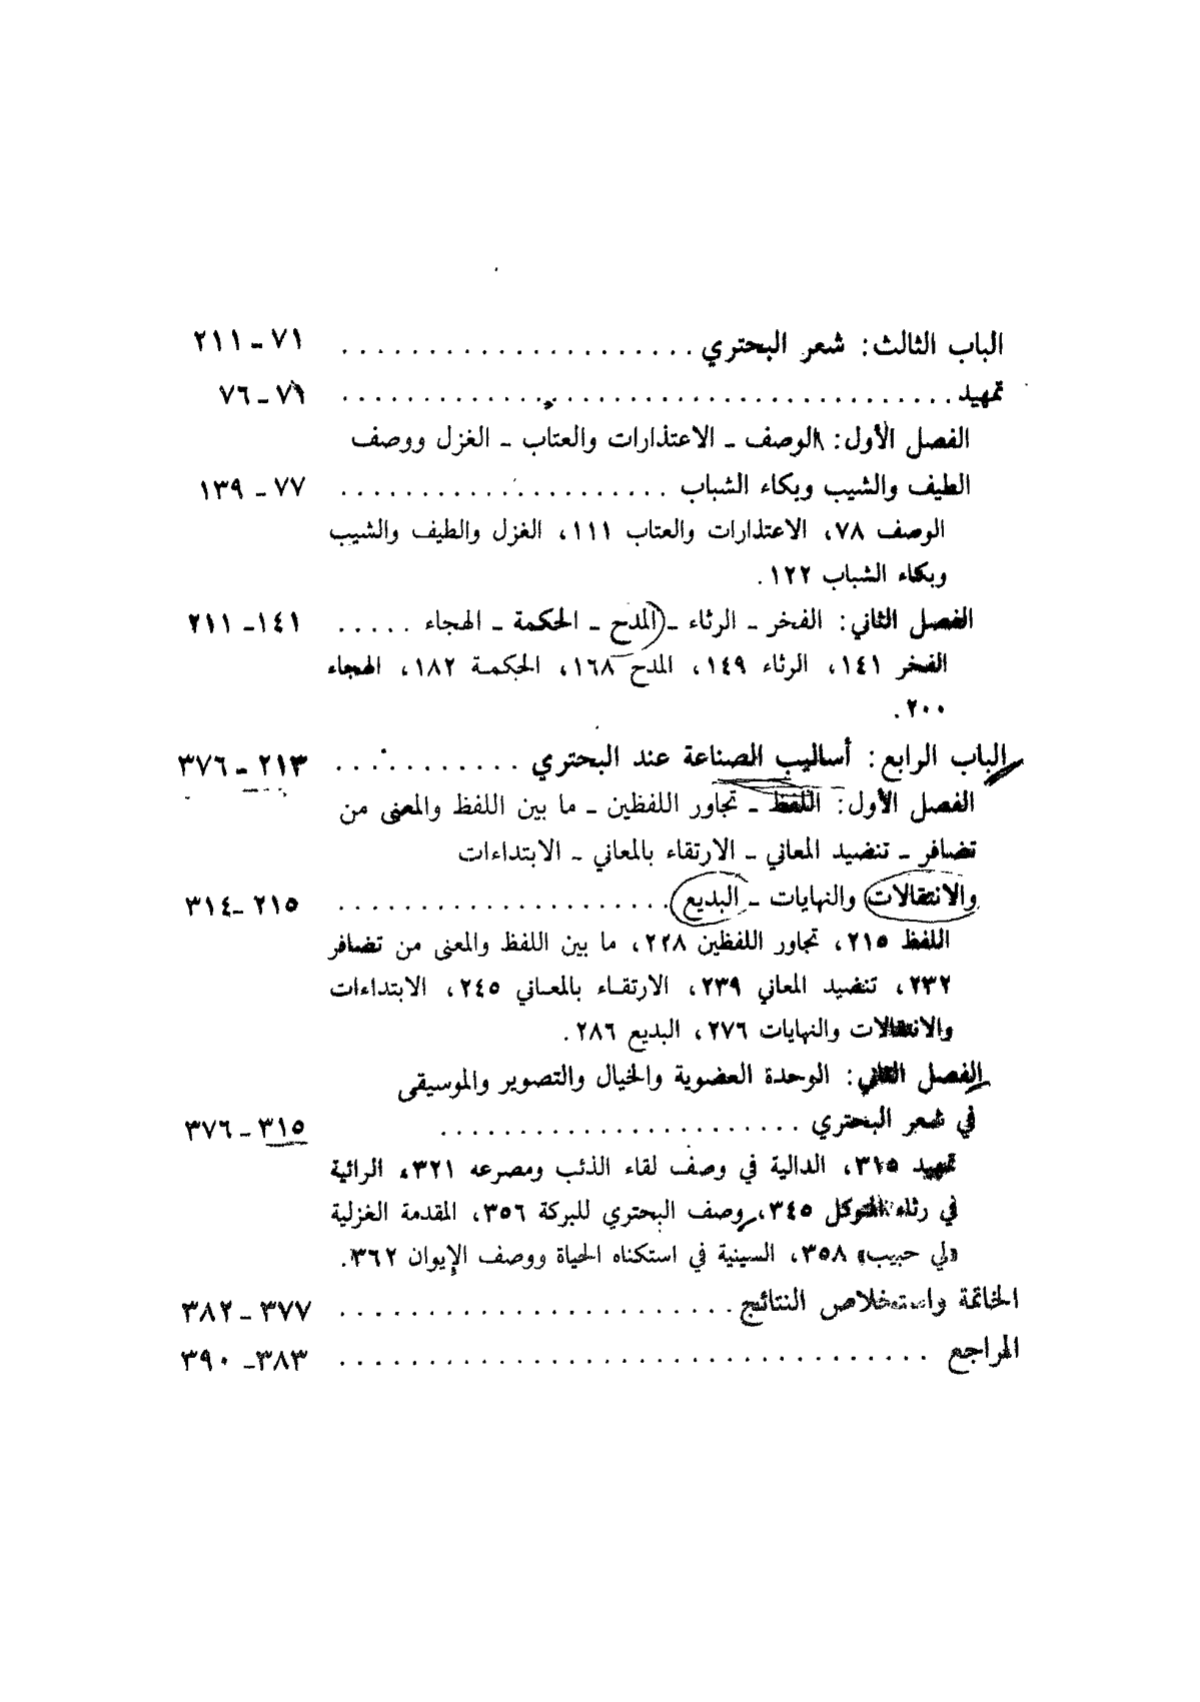 الباب الثالث: شعر البحتري ..................... ٧١ـ٢١١
تمهيد ..................................... ٧١ـ٧٦
الفصل الأول: الوصف ـ الاعتذارات والعتاب ـ الغزل ووصف
الطيف والشيب وبكاء الشباب .................... ٧٧ـ١٣٩
الوصف ٧٨، الاعتذارات والعتاب ١١١، الغزل والطيف والشيب
وبكاء الشباب ١٢٢.
الفصل الثاني: الفخر ـ الرثاء ـ المدح ـ الحكمة ـ الهجاء ..... ١٤١ـ٢١١
الفخر ١٤١، الرثاء ١٤٩، المدح ١٦٨، الحكمة ١٨٢، الهجاء
٢٠٠.
الباب الرابع: أساليب الصناعة عند البحتري ........... ٢١٣ـ٣٧٦
الفصل الأول: اللفظ ـ تجاور اللفظين ـ ما بين اللفظ والمعنى من
تضافر ـ تنضيد المعاني ـ الارتقاء بالمعاني ـ الابتداءات
والانتقالات والنهايات ـ البديع .................... ٢١٥ـ٣١٤
اللفظ ٢١٥، تجاور اللفظين ٢٢٨، ما بين اللفظ والمعنى من تضافر
٢٣٢، تنضيد المعاني ٢٣٩، الارتقاء بالمعاني ٢٤٥، الابتداءات
والانتقالات والنهايات ٢٧٦، البديع ٢٨٦.
الفصل الثاني: الوحدة العضوية والخيال والتصوير والموسيقى
في شعر البحتري ...................... ٣١٥ـ٣٧٦
تمهيد ٣١٥، الدالية في وصف لقاء الذئب ومصرعه ٣٢١، الرائية
في رثاء المتوكل ٣٤٥، وصف البحتري للبركة ٣٥٦، المقدمة الغزلية
«لي حبيب» ٣٥٨، السينية في استكناه الحياة ووصف الإيوان ٣٦٢.
الخاتمة واستخلاص النتائج ....................... ٣٧٧ـ٣٨٢
المراجع .................................. ٣٨٣ـ٣٩٠